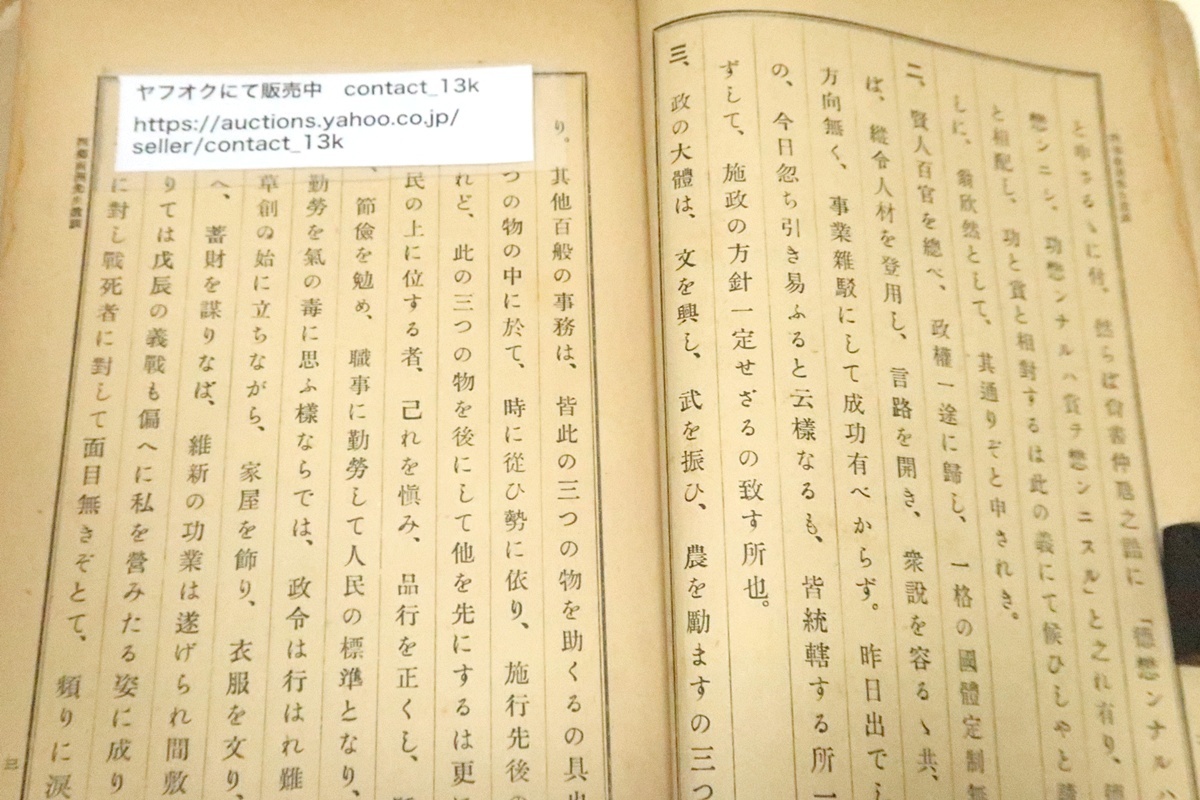 ヤフオクにて販売中 contact_13k
https://auctions.yahoo.co.jp/
seller/contact_13k
と申さるゝに付、然らば尙書仲虺之誥に「德懋ンナルハ
懋ンニシ、功懋ンナルハ賞ヲ懋ンニスル」と之れ有り、
と相配し、功と賞と相對するは此の義にて候ひしやと
しに、翁欣然として、其通りぞと申されき。
二、賢人百官を總べ、政權一途に歸し、一格の國體定制無
ば、縱令人材を登用し、言路を開き、衆說を容るゝ共、
方向無く、事業雜駁にして成功有べからず。昨日出でし
の、今日忽ち引き易ふると云樣なるも、皆統轄する所一
ずして、施政の方針一定せざるの致す所也。
三、政の大體は、文を興し、武を振ひ、農を勵ますの三つ
り。其他百般の事務は、皆此の三つの物を助くるの具
つの物の中に於て、時に從ひ勢に依り、施行先後の
れど、此の三つの物を後にして他を先にするは更に
民の上に位する者、己れを愼み、品行を正くし、
、節儉を勉め、職事に勤勞して人民の標準となり、
勤勞を氣の毒に思ふ樣ならでは、政令は行はれ難
草創の始に立ちながら、家屋を飾り、衣服を文り、
へ、蓄財を謀りなば、維新の功業は遂げられ間敷
りては戊辰の義戰も偏へに私を營みたる姿に成り
に對し戰死者に對して面目無きぞとて、頻りに淚
三